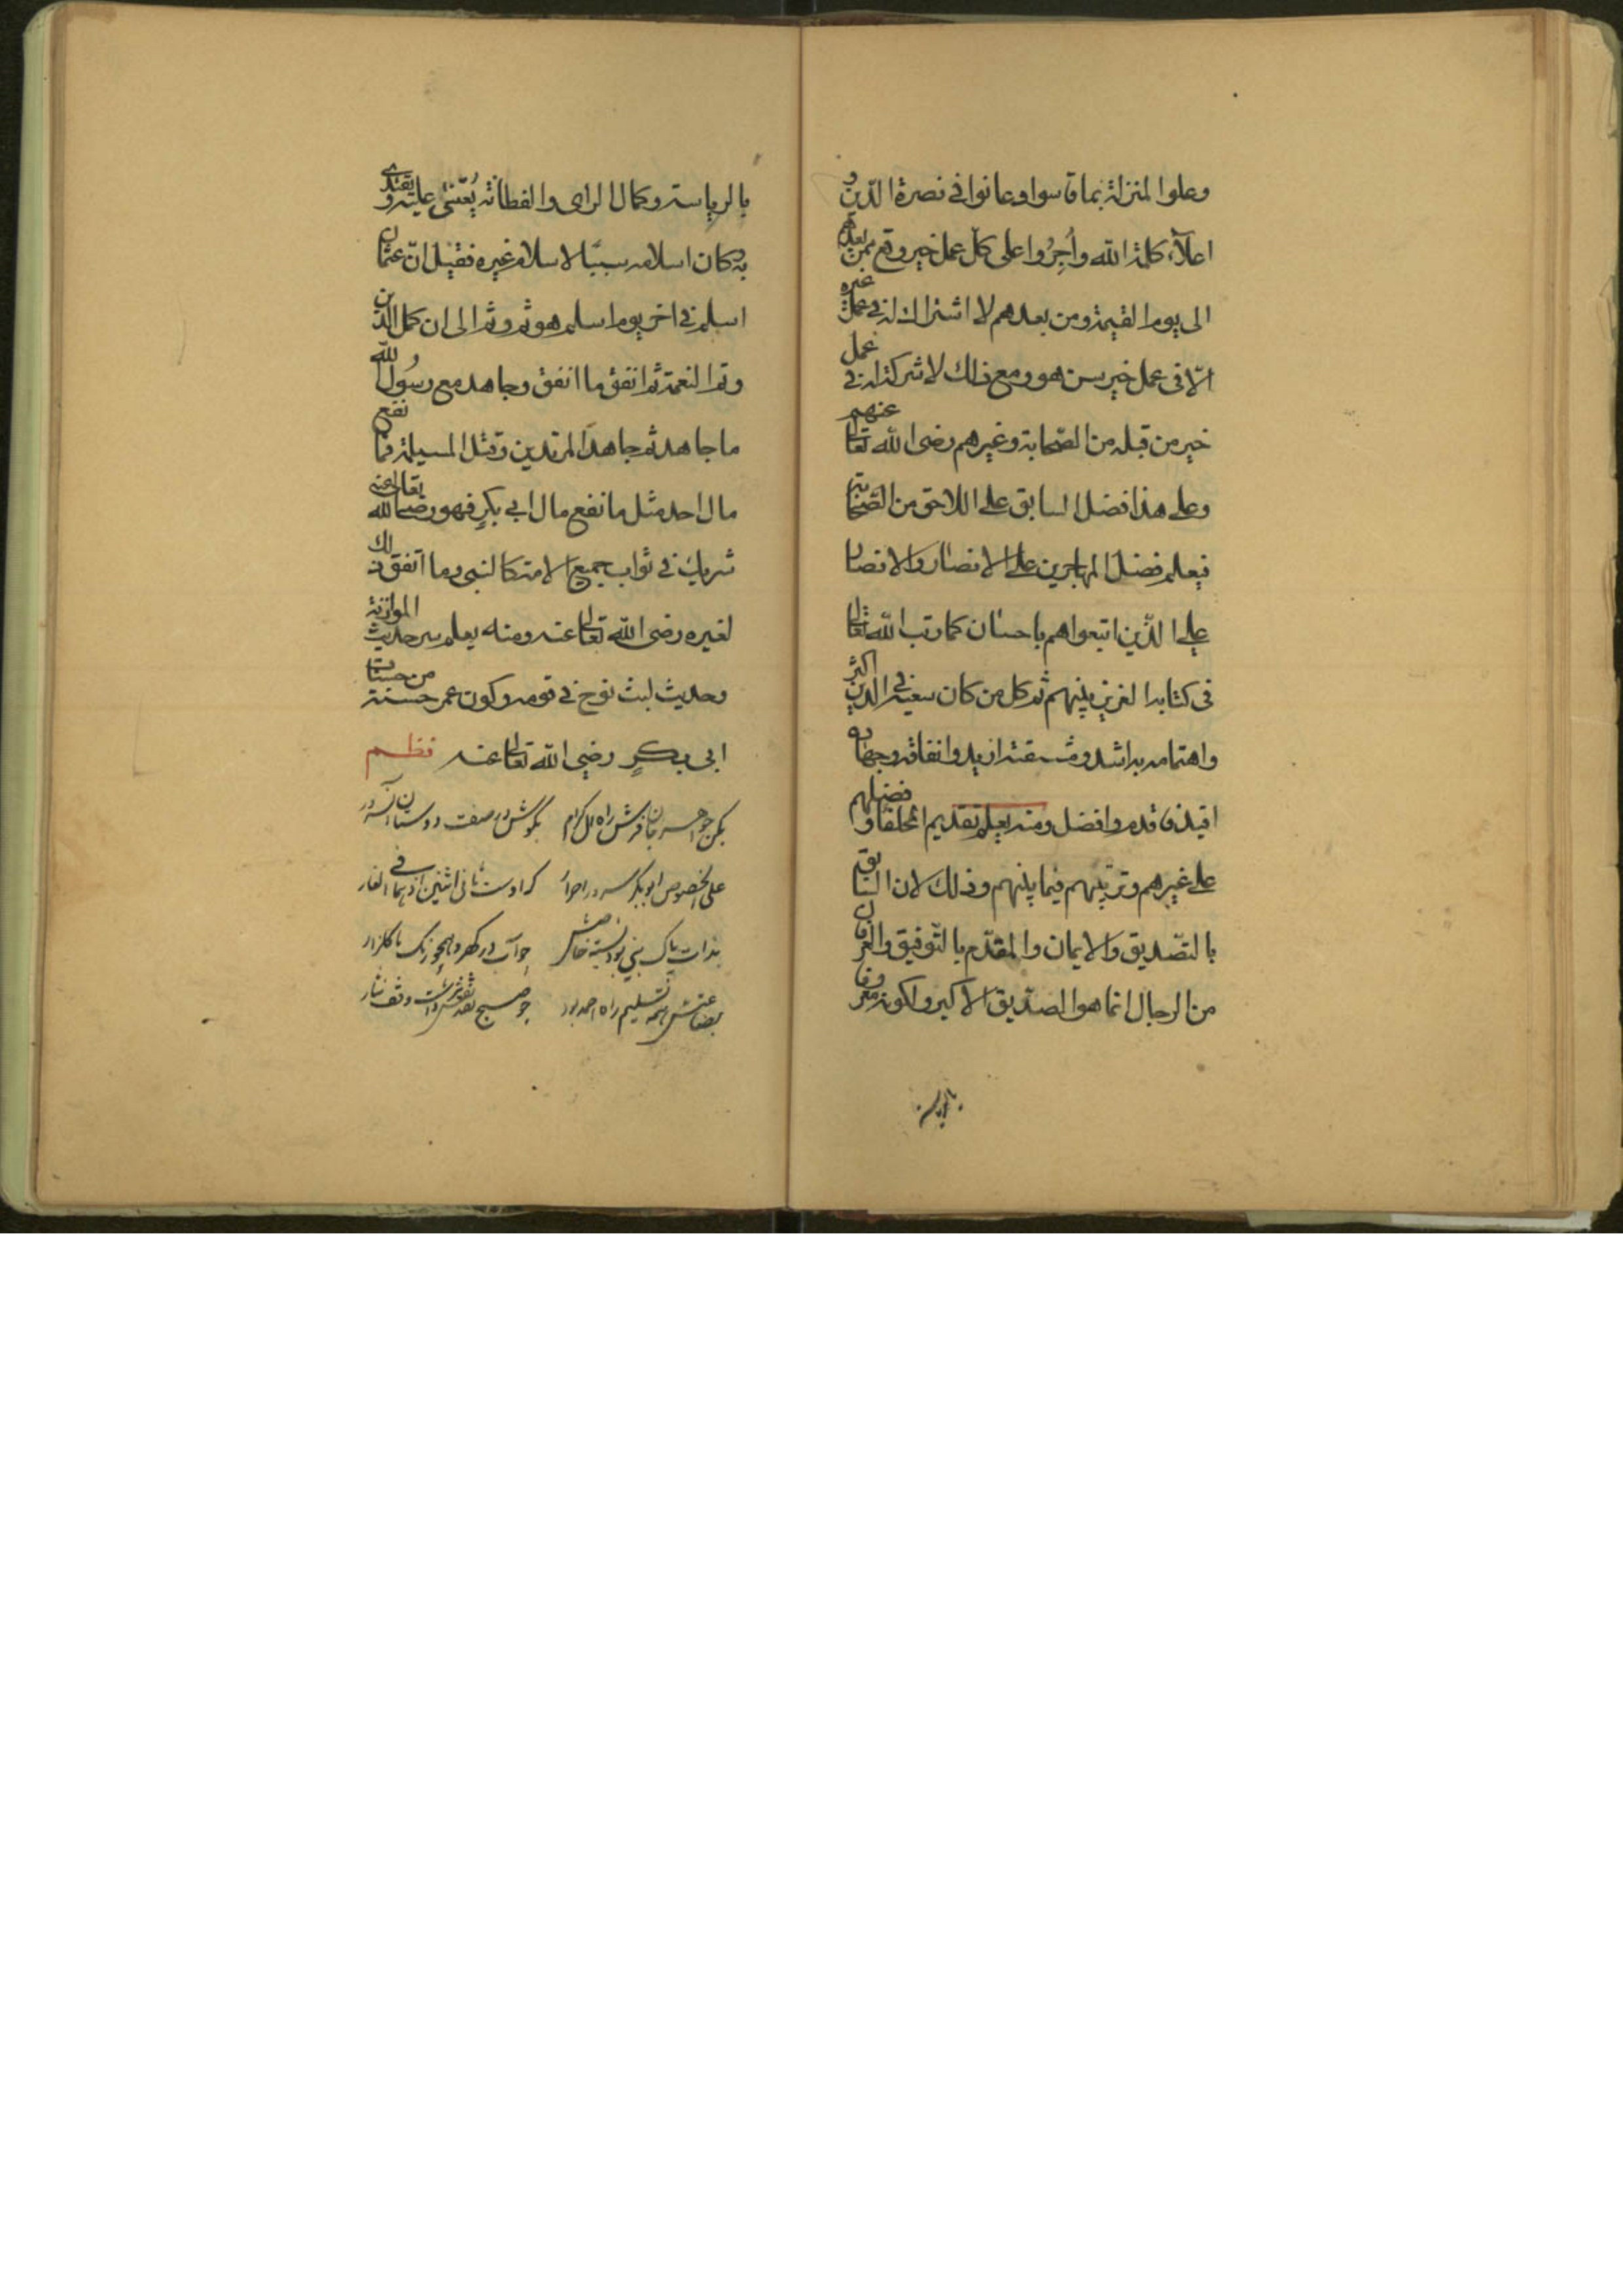 وعلوا المنزلة بما قاسوا وعانوا فى نصرة الدّين و
اعلآء كلمة الله وأُجِرُوا على كلّ عمل خير وقع ممن بعدهم
الى يوم القيمة ومن بعدهم لا اشتراك له فى عمل غيره
الّا فى عمل خير سن هو ومع ذلك لا شركة له فى عمل
خير من قبله من الصّحابة وغيرهم رضى الله تعالى عنهم
وعلى هذا فضل السابق على اللاحق من الصّحابة
فيعلم فضل المهاجرين على الانصار والانصار
على الّذين اتبعواهم باحسان كما رتب الله تعالى
فى كتابه العزيز بينهم ثم كل من كان سعيه فى الدين اكثر
واهتمامه به اشد ومشقته ازيد وانفاقه وجهاده
اقيد فاقدم وافضل ومنه يعلم تقديم الخلفاء وفضلهم
على غيرهم وترتيبهم فيما بينهم وذلك لان السّابق
بالتصّديق والايمان والمقدّم بالتّوفيق والعرفان
من الرجال انما هو الصدّيق الاكبر ولكونه معروفا
بالرياسة وكمال الراى والفطانة يُعتنى عليه ويقتدى
به كان اسلامه سببًا لاسلام غيره فقيل انّ عثمان
اسلم فى اخر يوم اسلم هو ثم وثم الى ان كمل الدّين
وتم النعمة ثم انفق ما انفق وجاهد مع رسُول الله
ما جاهد ثم جاهد المرتدين وقتل المسيلمة فما نفع
مال احد مثل ما نفع مال ابى بكرٍ فهو رضى الله تعالى عنه
شريك فى ثواب جميع الامة كالنبى وما اتفق ذلك
لغيره رضى الله تعالى عنه ومنه يعلم سر حديث الموازنة
وحديث لبث نوح فى قومه وكون عمر حسنة من حسنات
ابى بكرٍ رضى الله تعالى عنه نظم
بكن جواهر جان فرش راه آل كرام بكوش در صفت دوستان آن سرور
على الخصوص ابوبكر سرور احرار كه اوست ثانى اثنين اذ هما فى الغار
بذات پاك نبى بود نسبت خاصش چو آب در كهر و همچو رنك با كلزار
بضاعتش همه تسليم راه احمد بود چو صبح نقد نفس داشت وقف نثار
بالرياسة